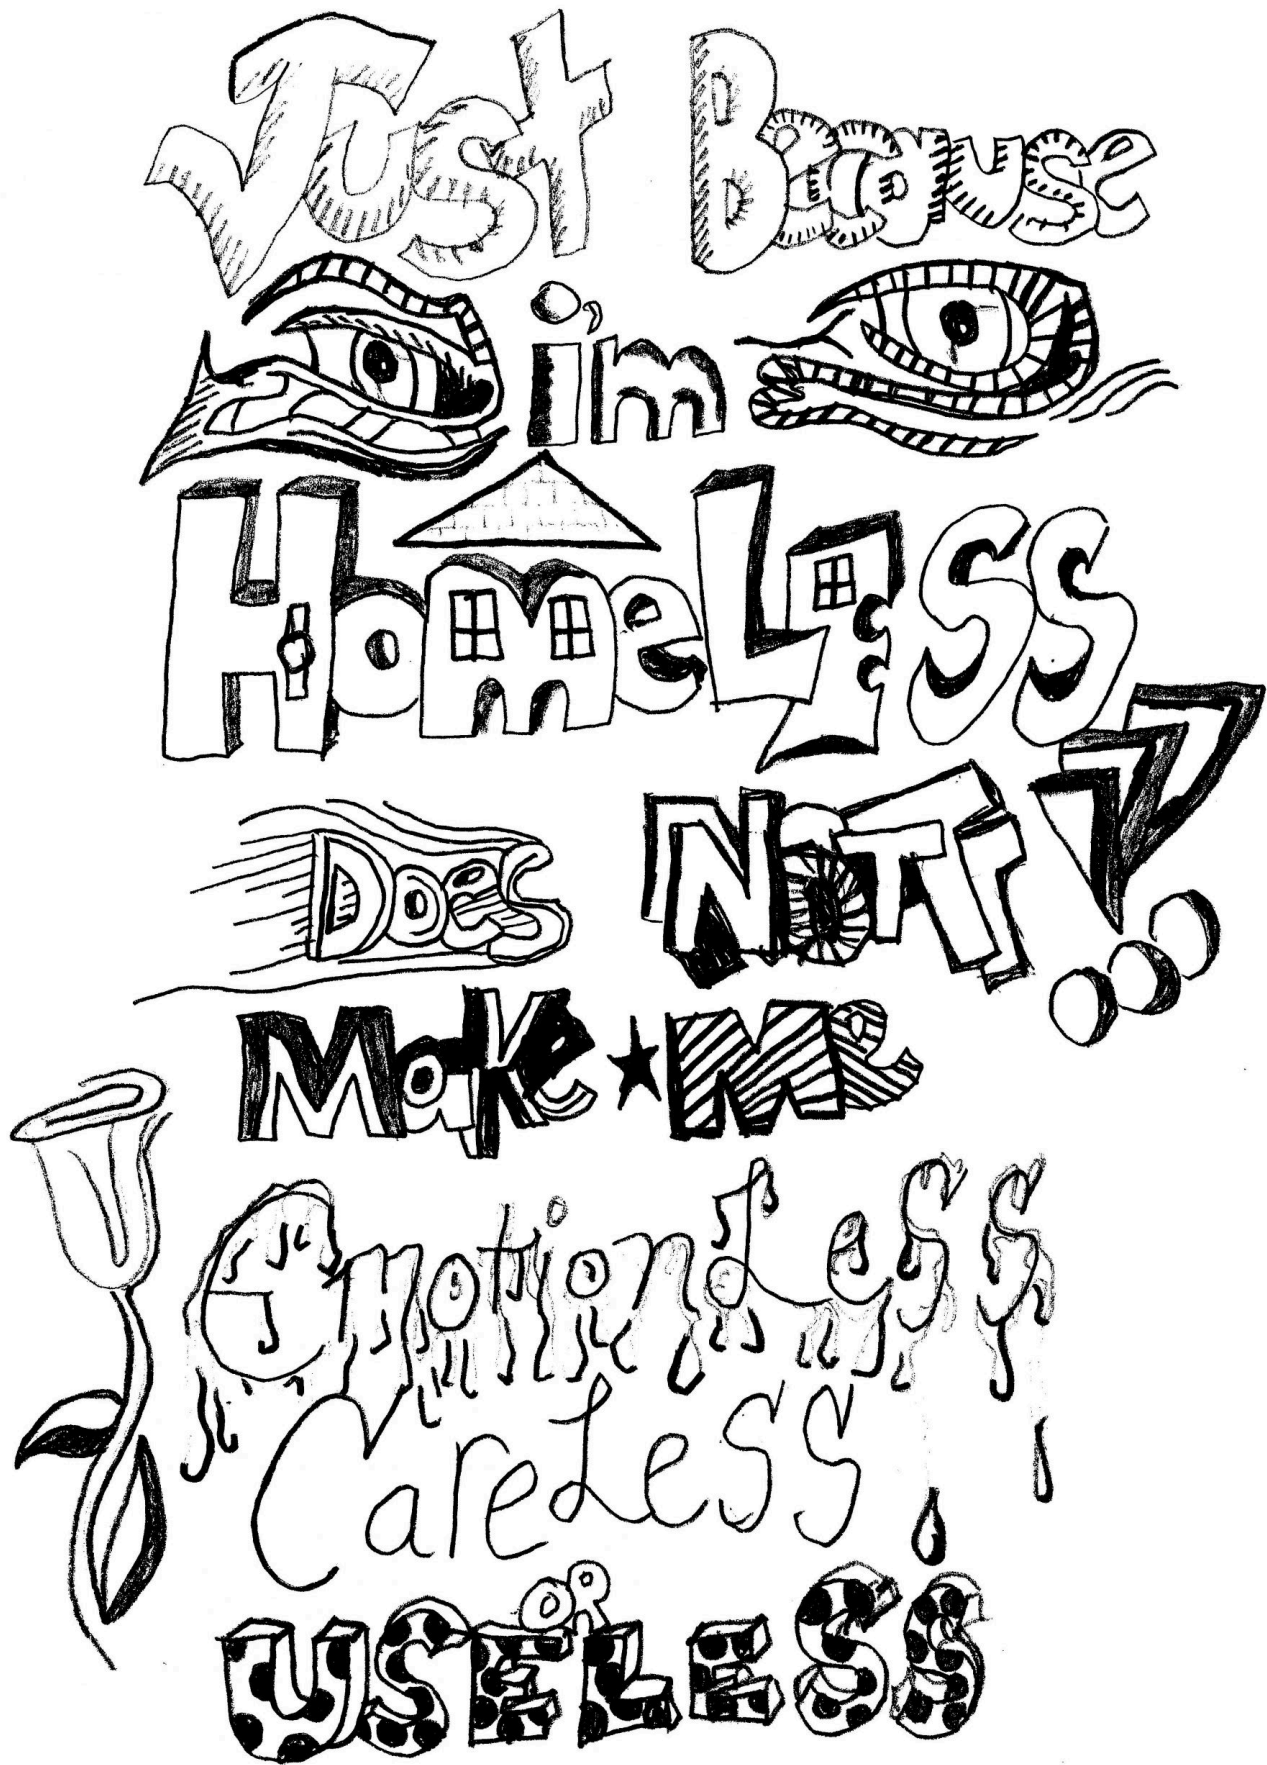 Just Because
i'm
HomeLESS
DoeS NOTT!!!
MaKe Me
EmotionLeSS
CareLeSS
OR
USELESS